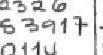 2326
53917
0114